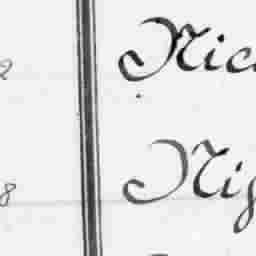 2 Nic
8 Nig